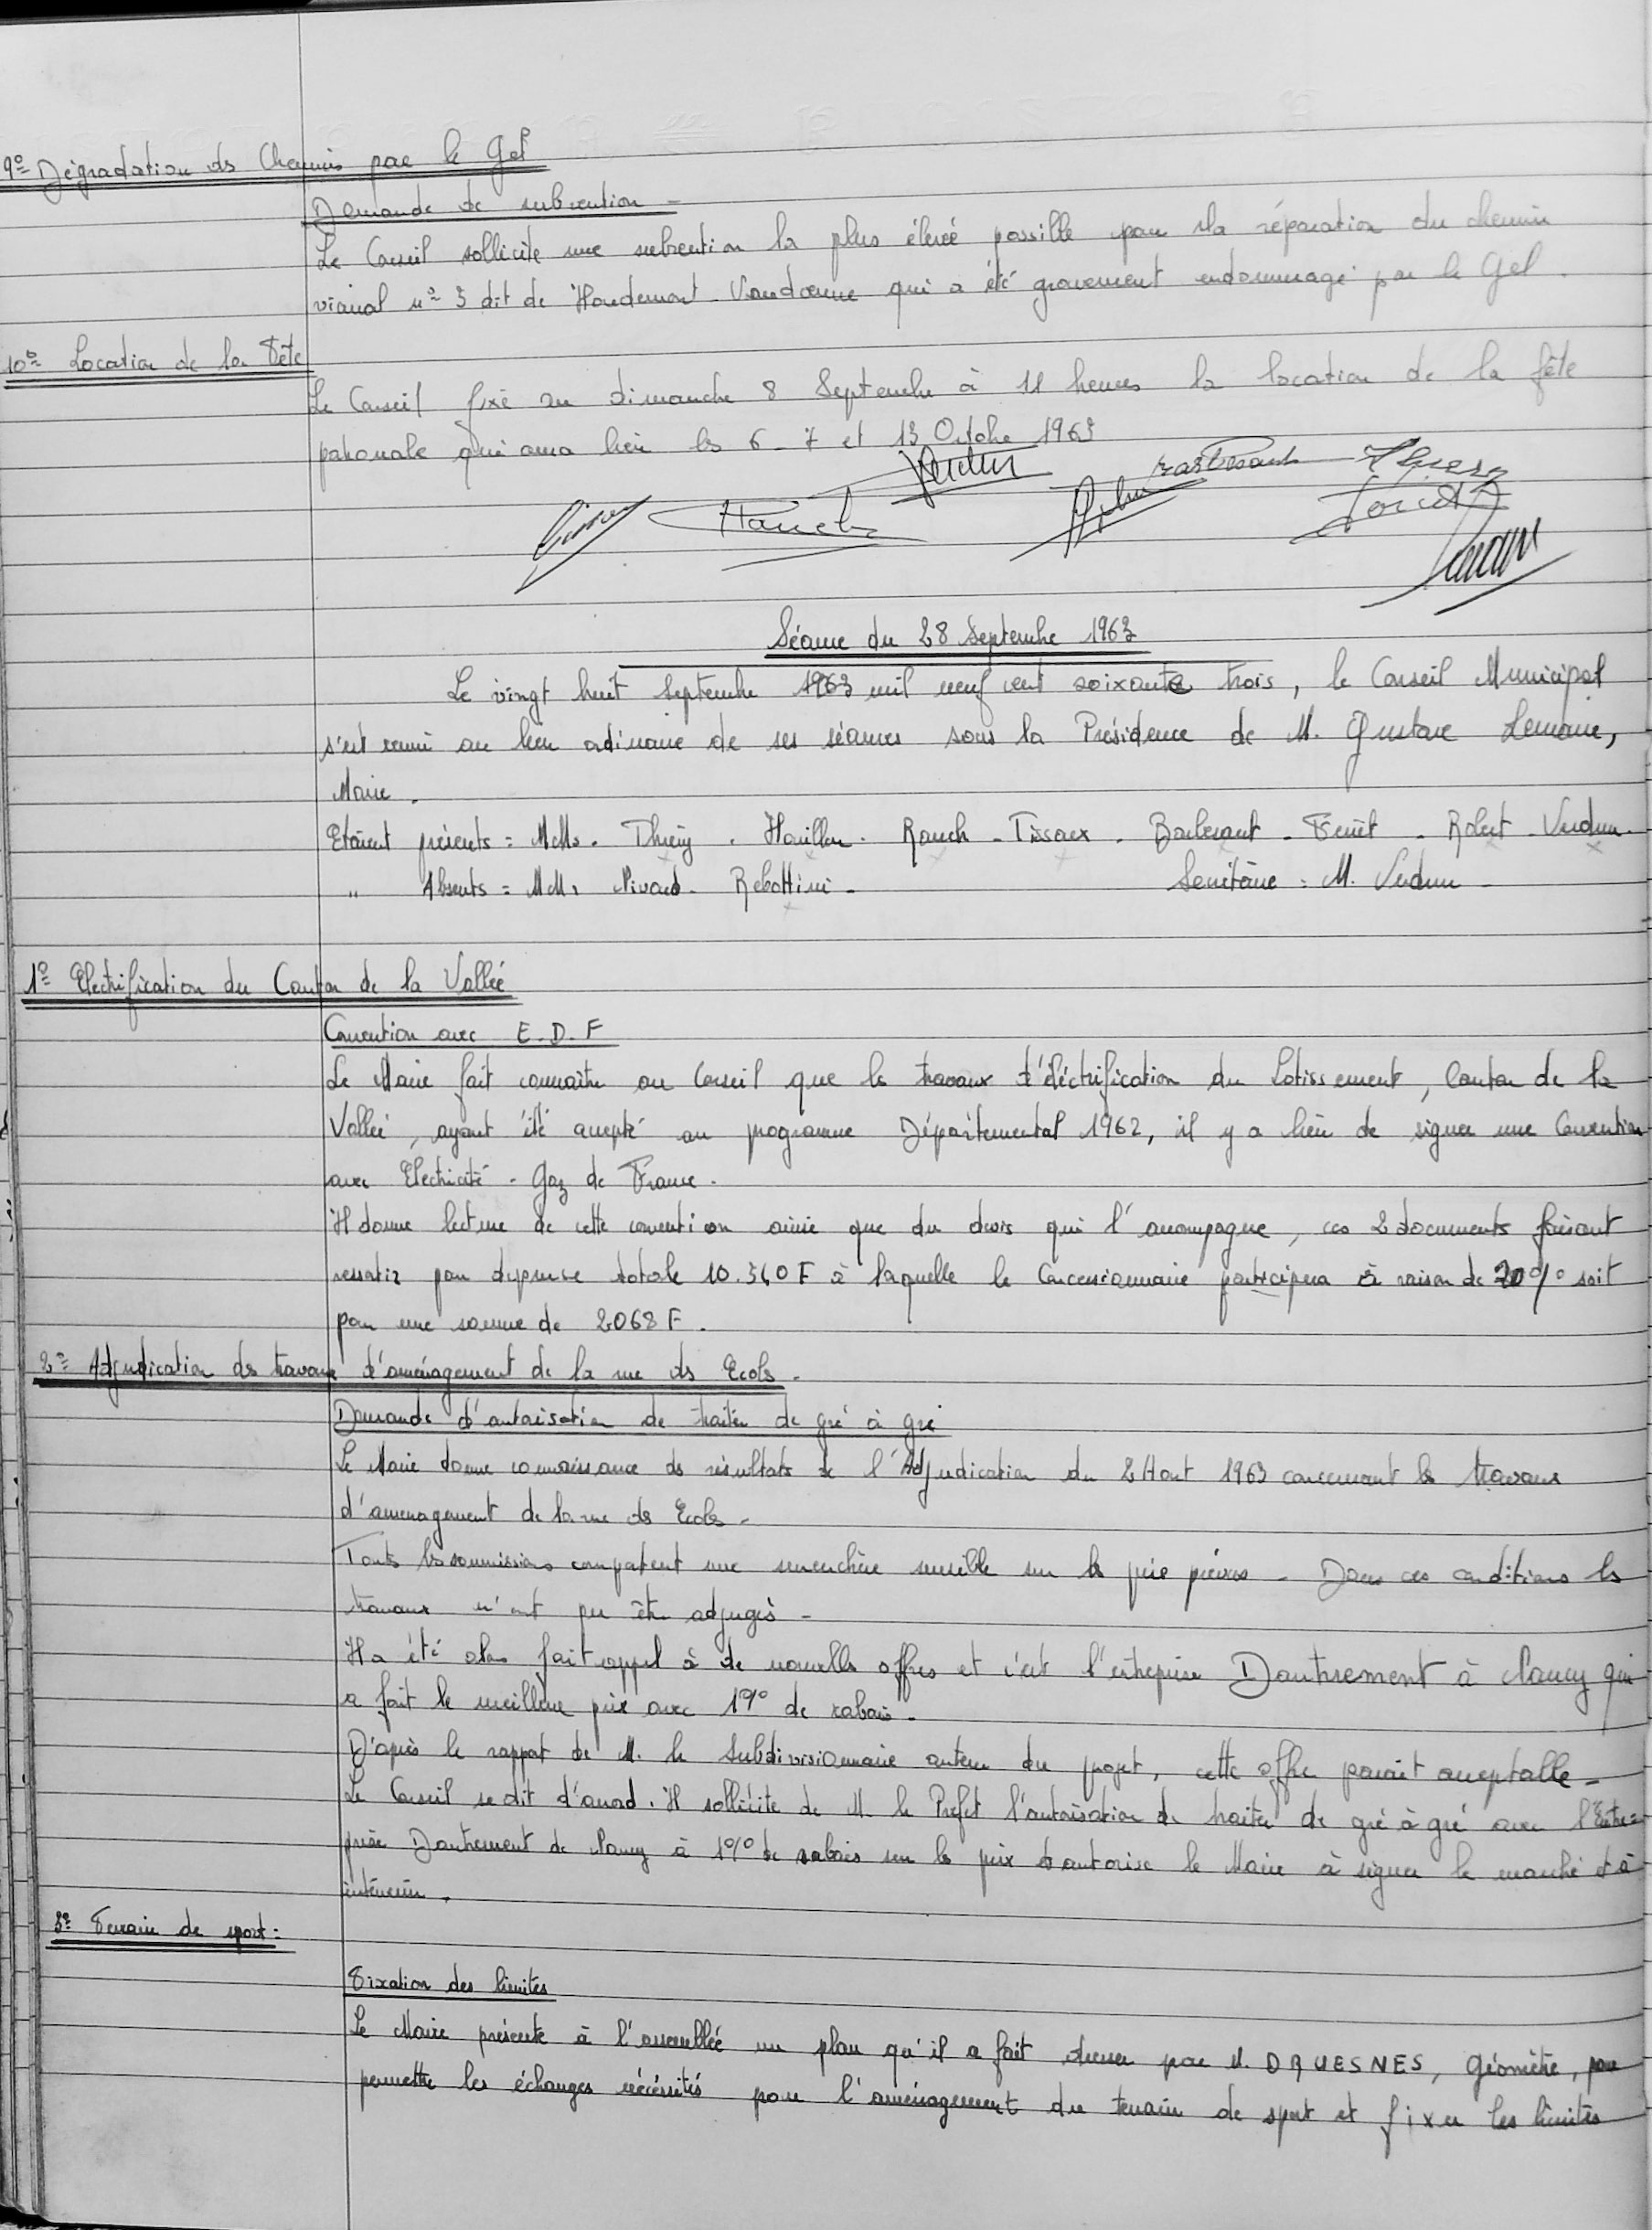 9º Dégradation des Chemins par le Gel
Demande de subvention -
Le Conseil sollicite une subvention la plus élevée possible pour la réparation du chemin
vicinal nº 3 dit de Houdemont - Vandoeuvre qui a été gravement endommagé par le Gel.
10º Location de la Fête
Le Conseil fixe au dimanche 8 Septembre à 11 heures la location de la fête
patronale qui aura lieu les 6 - 7 et 13 Octobre 1963
Séance du 28 Septembre 1963
Le vingt huit Septembre 1963 mil neuf cent soixante trois, le Conseil Municipal
s'est réuni au lieu ordinaire de ses séances sous la Présidence de M. Gustave Lemoine,
Maire.
Etaient présents = MMs. Thiéry . Houillon . Rauch - Tissoux . Barberant - Férièt . Robert - Verdun.
" Absents = MMs Nivard - Rebottini - Secrétaire : M. Verdun -
1º Electrification du Canton de la Vallée
Convention avec E.D.F
Le Maire fait connaître au Conseil que les travaux d'éléctrification du Lotissement, Canton de la
Vallée, ayant été accepté au programme Départemental 1962, il y a lieu de signer une Convention
avec Electricité - Gaz de France.
Il donne lecture de cette convention ainsi que du devis qui l'accompagne, ces 2 documents faisant
ressortir pour dépense totale 10.340 F à laquelle le Concessionnaire participera à raison de 20% soit
pour une somme de 2068 F.
2º Adjudication des travaux d'aménagement de la rue des Ecoles.
Demande d'autorisation de traiter de gré à gré
Le Maire donne connaissance des résultats de l'Adjudication du 2 Aout 1963 concernant les travaux
d'aménagement de la rue des Ecoles -
Touts les soumissions comportent une surenchère sensible sur les prix prévus - Dans ces conditions les
travaux n'ont pu être adjugés -
Il a été alors fait appel à de nouvelles offres et c'est l'entreprise Dautrement à Nancy qui
a fait le meilleur prix avec 1% de rabais -
D'après le rapport de M. le Subdivisionnaire auteur du projet, cette offre parait acceptable -
Le Conseil se dit d'accord. Il sollicite de M. le Préfet l'autorisation de traiter de gré à gré avec l'Entre=
prise Dautrement de Nancy à 1% de rabais sur les prix et autorise le Maire à signer le marché et à
intervenir.
3º Terrain de sport :
Fixation des limites
Le Maire présente à l'assemblée un plan qu'il a fait dresser par M. DQUESNES, Géomètre, pour
permettre les échanges nécéssités pour l'aménagement du terrain de sport et fixer les limites